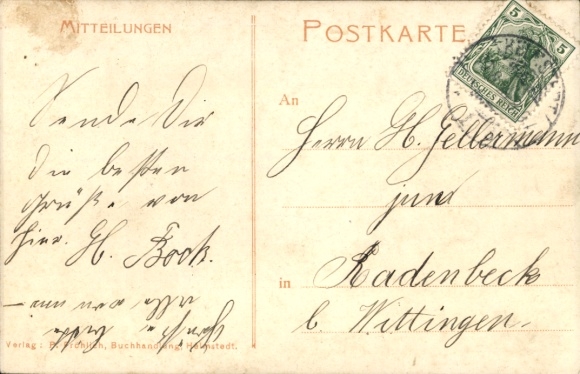 MITTEILUNGEN
Sende Dir
die besten
Grüße von
hier. H. Bock.
Verlag: R. Fröhlich, Buchhandlung, Helmstedt.
POSTKARTE
5 5
DEUTSCHES REICH
An
Herrn H. Gellermann
jun
in Radenbeck
b. Wittingen.